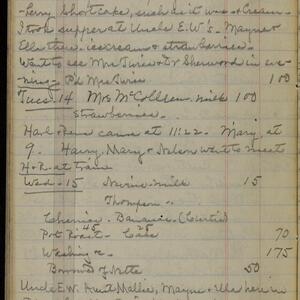 -berry shortcake, such as it was & cream-
I took supper at Uncle E.W's. Mayne &
Ella there. icecream & strawberries.
Went to see Mrs & Dr Sherwood in eve-
ning - Pd Mrs 100
Tues. 14 Mrs McCollum - milk 100
strawberries -
Harl & Rena came at 11:22. Mary, at
9. Harry, Mary & Nelson went to meet
H & R. at train
Wed - 15 milk 15
Thompson -
Cherries - Bananas - (Curtis)
Pot Roast - 45 Cake 25 70
Washing - 175
Borrowed of Netta 50
Uncle E.W. Aunt Mallie, Mayne & Ella here in